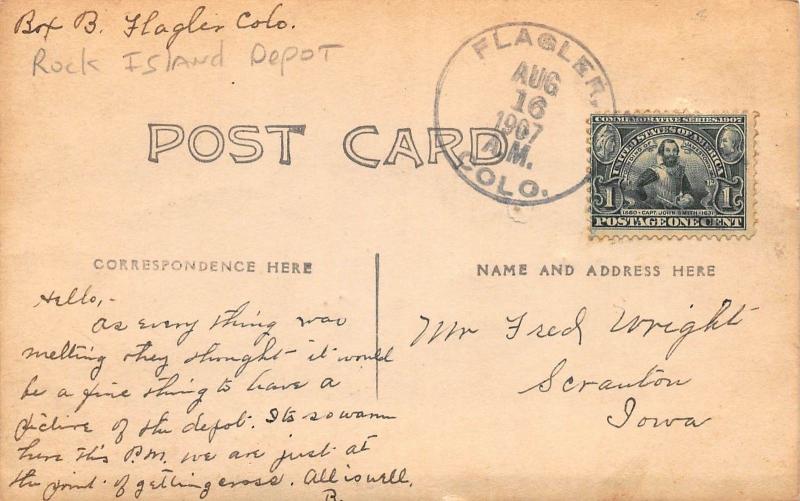 Box B. Flagler Colo.
Rock Island Depot
FLAGLER,
AUG
16
1907
A.M.
COLO.
POST CARD
COMMEMORATIVE SERIES 1907
UNITED STATES OF AMERICA
1 1
1580 · CAPT. JOHN SMITH · 1631
POSTAGE ONE CENT
CORRESPONDENCE HERE
NAME AND ADDRESS HERE
Hello,-
as every thing was
melting they thought it would
be a fine thing to have a
picture of the depot. Its so warm
here this P.M. we are just at
the point of getting cross. All is well.
B.
Mr Fred Wright
Scranton
Iowa